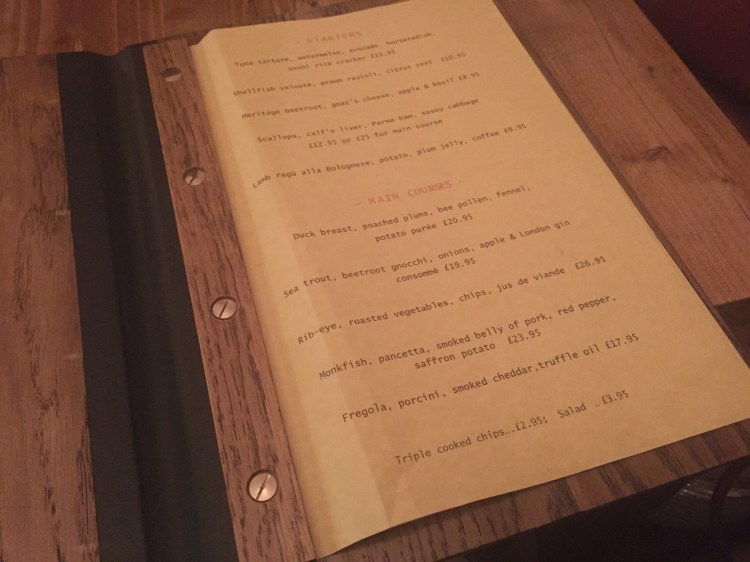 - STARTERS
Tuna tartare, watermelon, avocado, horseradish,
sushi rice cracker £13.95
Shellfish veloute, prawn ravioli, citrus zest £10.95
Heritage beetroot, goat's cheese, apple & basil £8.95
Scallops, calf's liver, Parma ham, savoy cabbage
£12.95 or £25 for main course
Lamb ragù alla Bolognese, potato, plum jelly, coffee £9.95
- MAIN COURSES -
Duck breast, poached plums, bee pollen, fennel,
potato purée £20.95
Sea trout, beetroot gnocchi, onions, apple & London gin
consommé £19.95
Rib-eye, roasted vegetables, chips, jus de viande £26.95
Monkfish, pancetta, smoked belly of pork, red pepper,
saffron potato £23.95
Fregola, porcini, smoked cheddar,truffle oil £17.95
Triple cooked chips….£2.95; Salad …£3.95